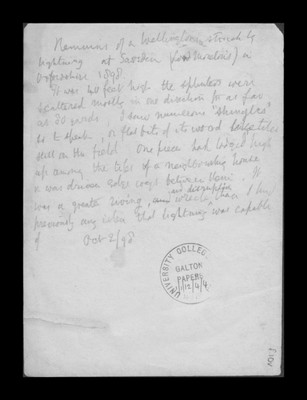 Remains of a Wellingtonia struck by
lightning at Sarsden (Lord Moreton's) in
Oxfordshire 1898
It was 40 feet high the splinters were
scattered mostly in one direction for as far
as 30 yards. I saw numerous "shingles"
so to speak, or flat bits of its wood
still on the field. One piece had lodged high
up among the tiles of a neighbouring house
& was driven edge ways between them. It
was a greater riving, and than I had
previously any idea that lightning was capable
of Oct 2/98
UNIVERSITY COLLEGE
GALTON
PAPERS